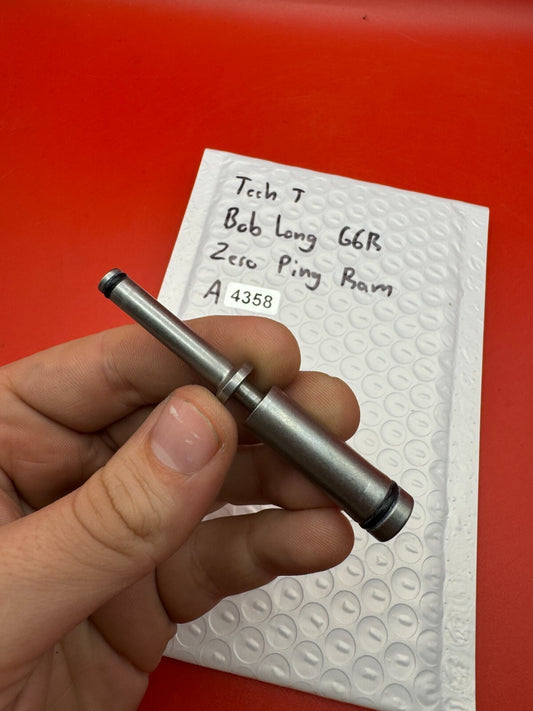 Tech T
Bob Long G6R
Zero Ping Ram
A 4358